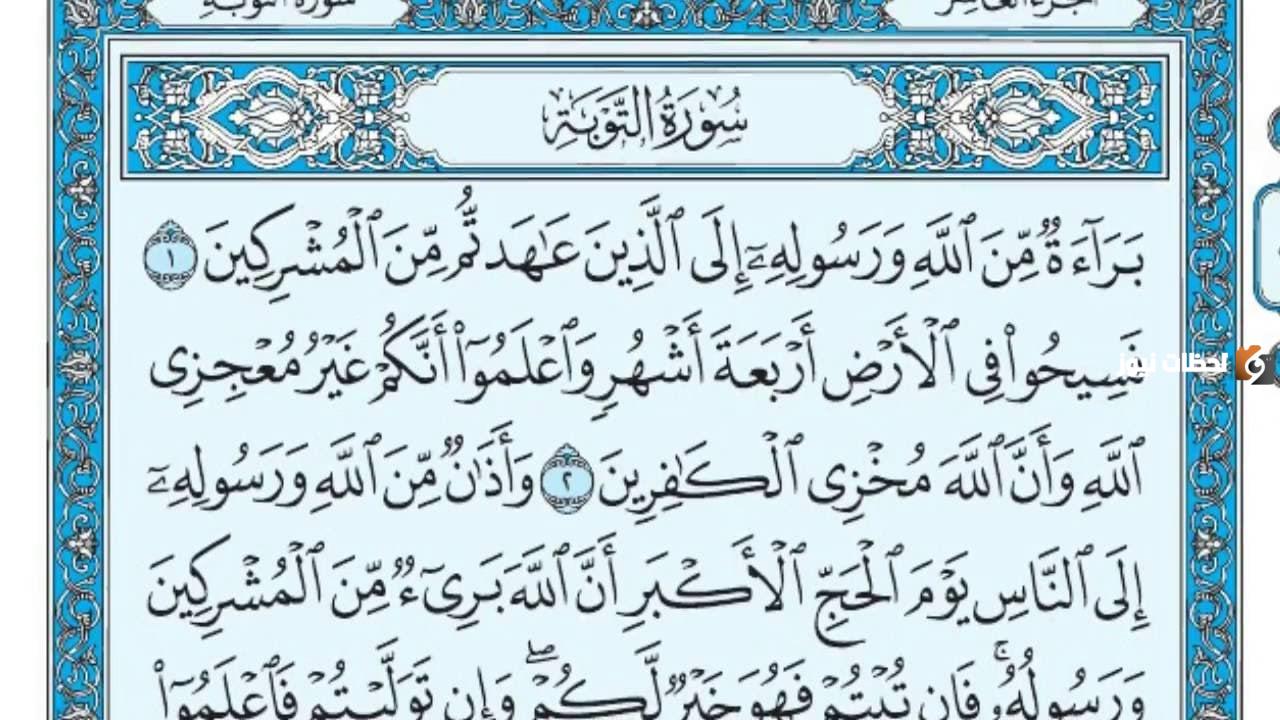 سورة التوبة
الجزء العاشر
سُورَةُ التَّوۡبَةِ
بَرَآءَةٞ مِّنَ ٱللَّهِ وَرَسُولِهِۦٓ إِلَى ٱلَّذِينَ عَٰهَدتُّم مِّنَ ٱلۡمُشۡرِكِينَ ١
فَسِيحُواْ فِي ٱلۡأَرۡضِ أَرۡبَعَةَ أَشۡهُرٖ وَٱعۡلَمُوٓاْ أَنَّكُمۡ غَيۡرُ مُعۡجِزِي
لحظات نيوز
ٱللَّهِ وَأَنَّ ٱللَّهَ مُخۡزِي ٱلۡكَٰفِرِينَ ٢ وَأَذَٰنٞ مِّنَ ٱللَّهِ وَرَسُولِهِۦٓ
إِلَى ٱلنَّاسِ يَوۡمَ ٱلۡحَجِّ ٱلۡأَكۡبَرِ أَنَّ ٱللَّهَ بَرِيٓءٞ مِّنَ ٱلۡمُشۡرِكِينَ
وَرَسُولُهُۥۚ فَإِن تُبۡتُمۡ فَهُوَ خَيۡرٞ لَّكُمۡۖ وَإِن تَوَلَّيۡتُمۡ فَٱعۡلَمُوٓاْ